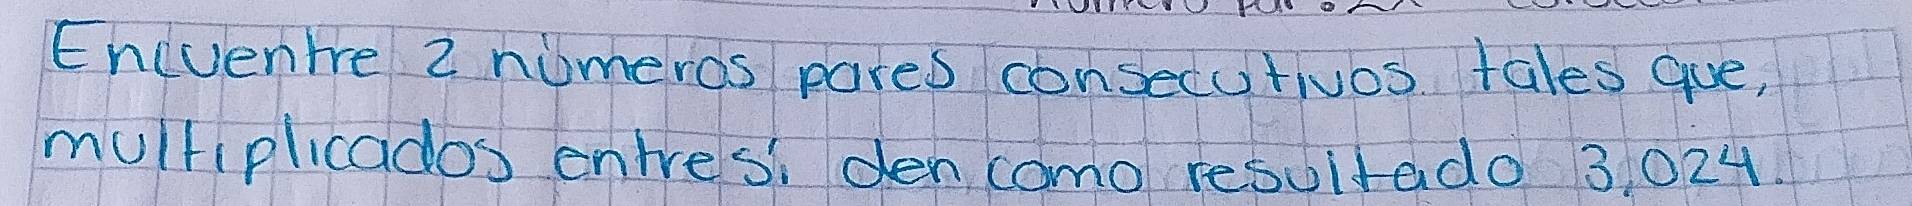 Encuentre 2 números pares consecutivos tales que,
multiplicados entre sí den como resultado 3,024.